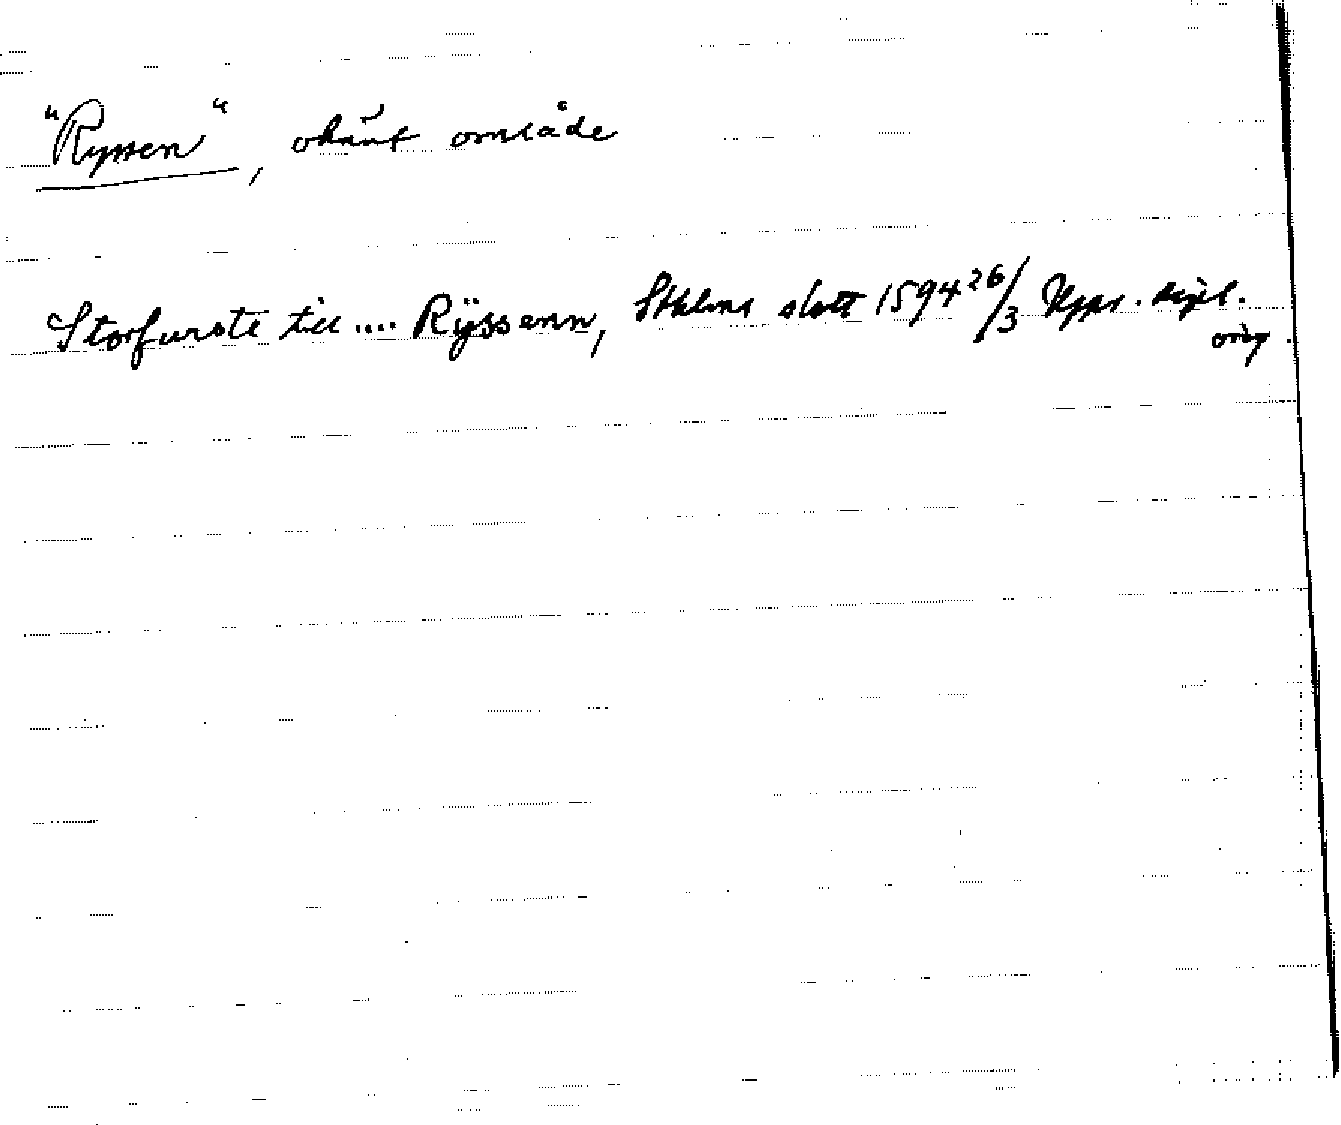 "Ryssen", okänt område
Storfurste till .... Rÿssenn, Sthlms slott 1594 26/3 Upps. dipl.
orig